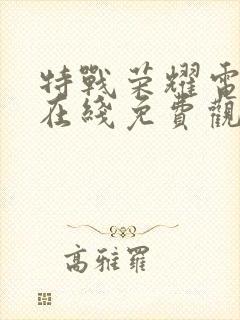 特戰荣耀電
在綫免費觀
高雅羅